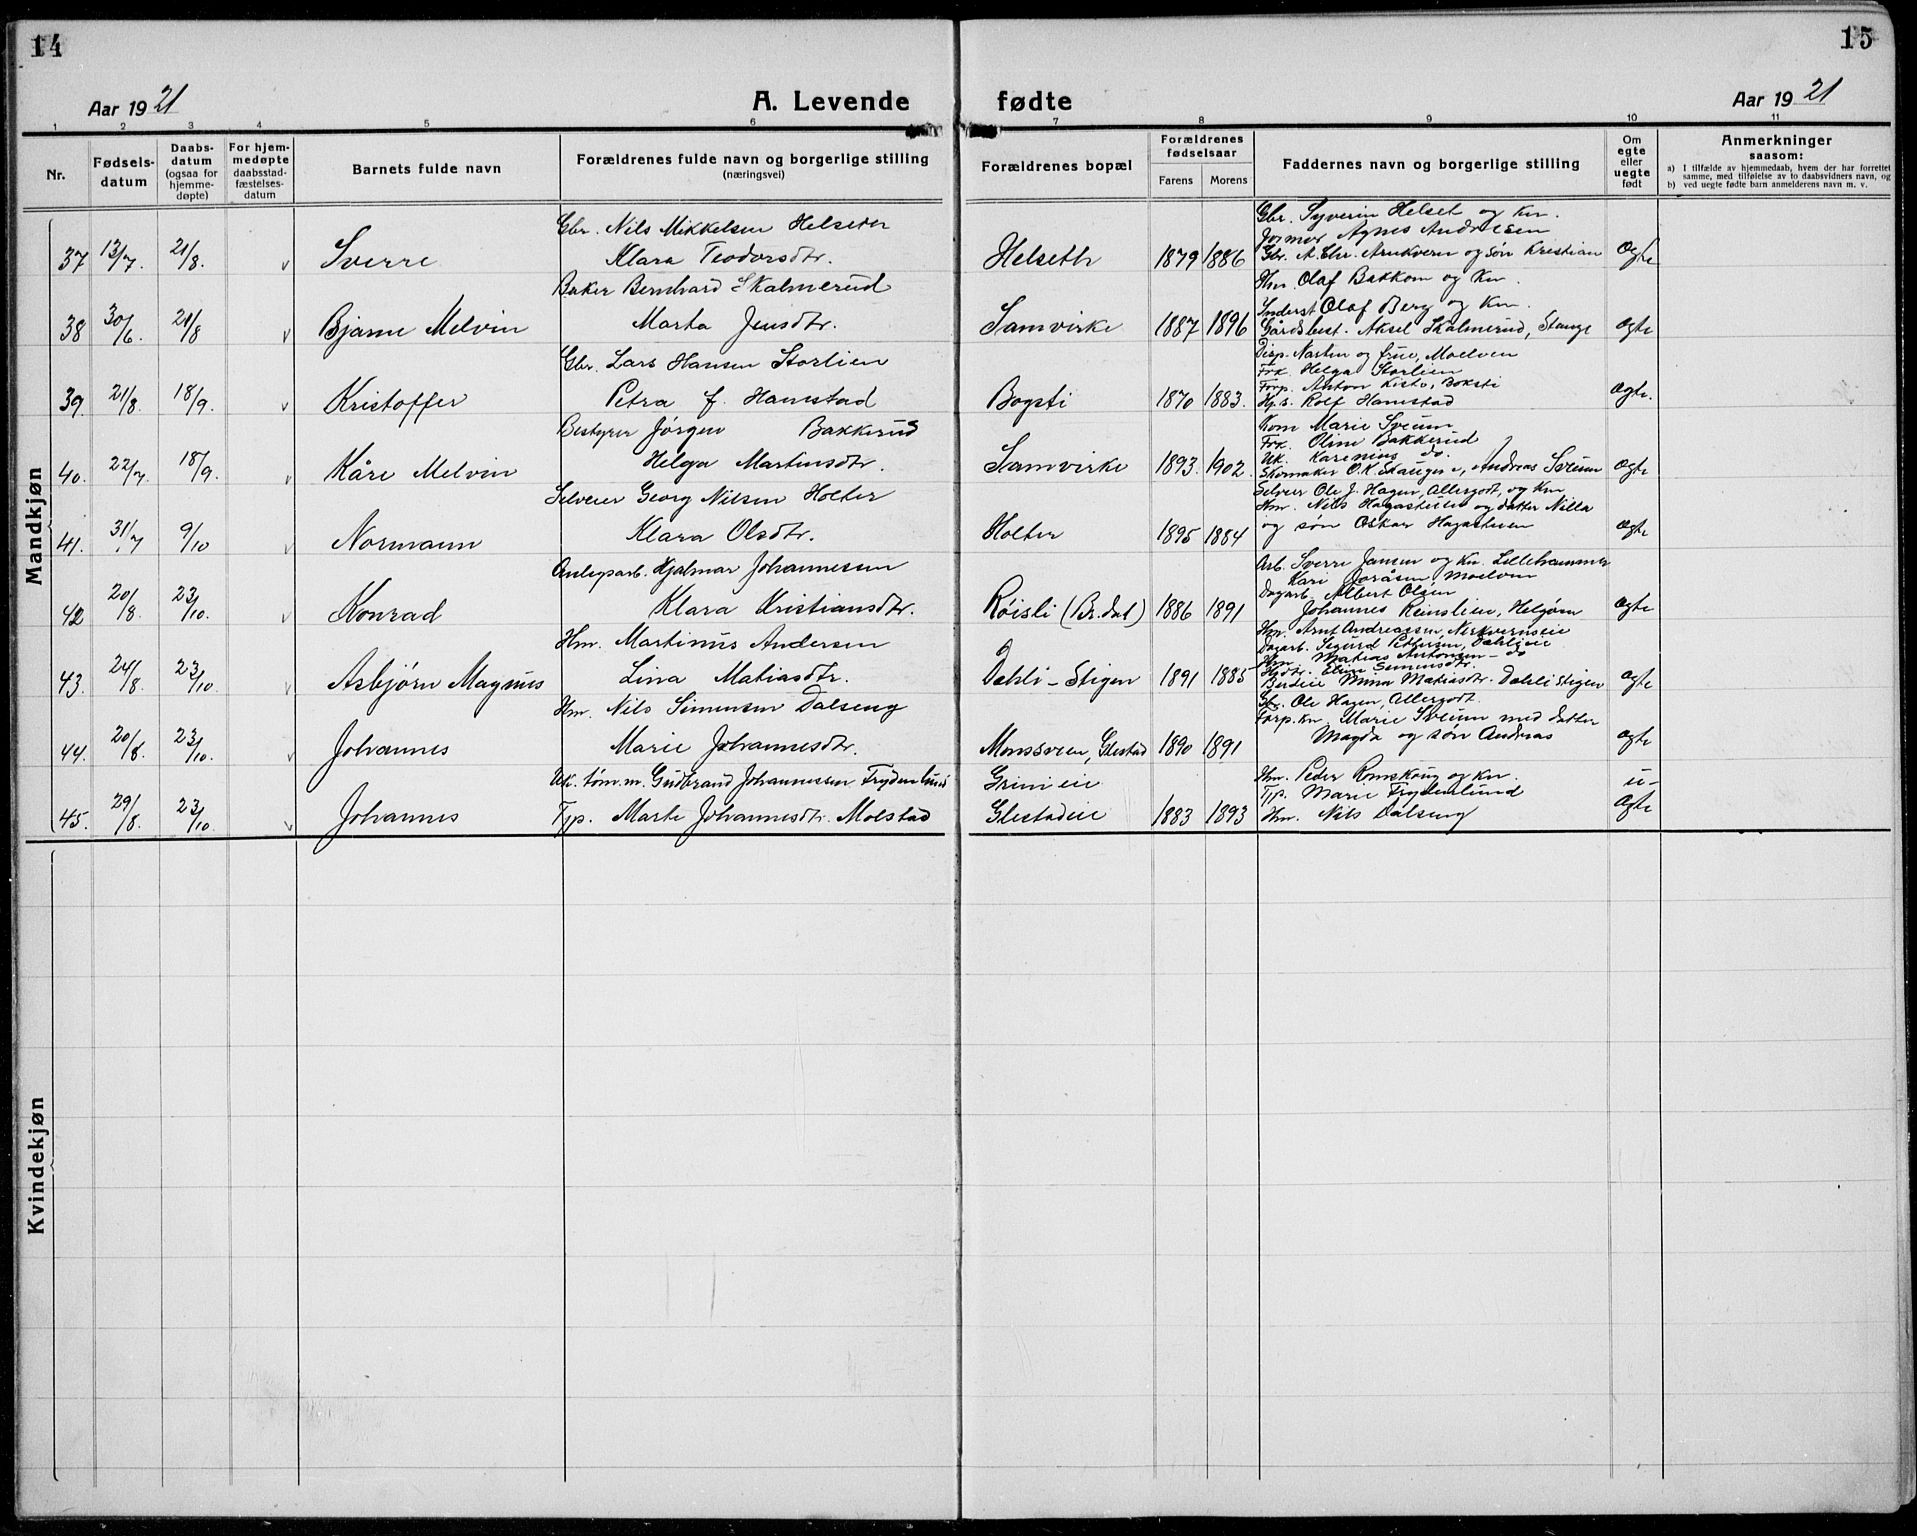 14
Aar 1921
A. Levende
1 2 3 4 5 6
Nr.
Fødsels-
datum
Daabs-
datum
(ogsaa for
hjemme-
døpte)
For hjem-
medøpte
daabsstad-
fæstelses-
datum
Barnets fulde navn
Forældrenes fulde navn og borgerlige stilling
(næringsvei)
Mandkjøn
Gbr. Nils Mikkelsen Helseter
37 13/7. 21/8. v Sverre Klara Teodorsdtr.
Baker Bernhard Skalmerud
38 30/6. 21/8 v Bjarne Melvin Marta Jensdtr.
Gbr. Lars Hansen Storlien
39 21/8. 18/9. v Kristoffer Petra f. Hamstad
Bestyrer Jørgen Bakkerud
40. 22/7. 18/9. v Kåre Melvin Helga Martinsdtr.
Selveier Georg Nilsen Holter
41. 31/7 9/10 v Normann Klara Olsdtr.
Anlegsarb. Hjalmar Johannessen
42 20/8. 23/10. v Konrad Klara Kristiansdtr.
Hm. Martinus Andersen
43. 24/8. 23/10. v Asbjørn Magnus Lina Matiasdtr.
Hm. Nils Simensen Dalseng
44. 20/8. 23/10. v Johannes Marie Johannesdtr.
Uk. tøm.m. Gudbrand Johannessen Frydenlund
45. 29/8. 23/10. v Johannes Tjp. Marte Johannesdtr. Molstad
Kvindekjøn
15
fødte
Aar 1921
7 8 9 10 11
Forældrenes bopæl
Forældrenes
fødselsaar
Farens Morens
Faddernes navn og borgerlige stilling
Om
egte
eller
uegte
født
Anmerkninger
saasom:
a) I tilfælde av hjemmedaab, hvem der har forrettet
samme, med tilføielse av to daabsvidners navn, og
b) ved uegte fødte barn anmelderens navn m. v.
Gbr. Syverin Helset og kn.
Jormor Agnes Andresen
Helseth 1879 1886 Gbr. A. Chr. Arnkvern og søn Kristian Egte
Hm. Olaf Bakkom og kn.
Inderst Olaf Berg og kn.
Samvirke 1887 1896 Gårdsbest. Aksel Skalmerud, Stange egte
Disp. Narten og frue, Moelven
Frk. Helga Storlien
Forp. Anton Kisto, Boksti
Bogsti 1870 1883. Hj.s. Rolf Hamstad egte.
Kom Marie Sveum
Frk. Oline Bakkerud
Uk. Karenius do.
Samvirke 1893. 1902. Skomaker O. K. Skaugen, Andreas Sveum egte
Selveier Ole J. Hagen, Allergodt, og kn
Hm. Nils Hagastuen og datter Nilla
Holter 1895 1884 og søn Oskar Hagastuen egte
Arb. Sverre Jansen og kn. Lillehammer
Kari Joråsen, Moelven
Dagarb. Albert Olsen
Røisli (Br.dal) 1886 1891 Johannes Reinslien, Helgøen egte
Hm. Arnt Andreassen, Nerkvernseie
Dagarb. Sigurd Pettersen, Dahlseie
Hm. Matias Antonsen - do
Hsdtr. Eline Simensdtr.
Dehli-Stigen 1891 1885 Berdeie Mina Matiasdtr. Dahlistigen egte
Gbr. Ole Hagen, Allergodt.
Forp. kn. Marie Sveum med datter
Monssveen, Glestad 1890 1891 Magda og søn Andreas egte
Grimeie Hm. Peder Romskoug og kn. u-
Tjp. Marie Frydenlund
Glestadeie 1883 1893 Hm. Nils Dalseng egte